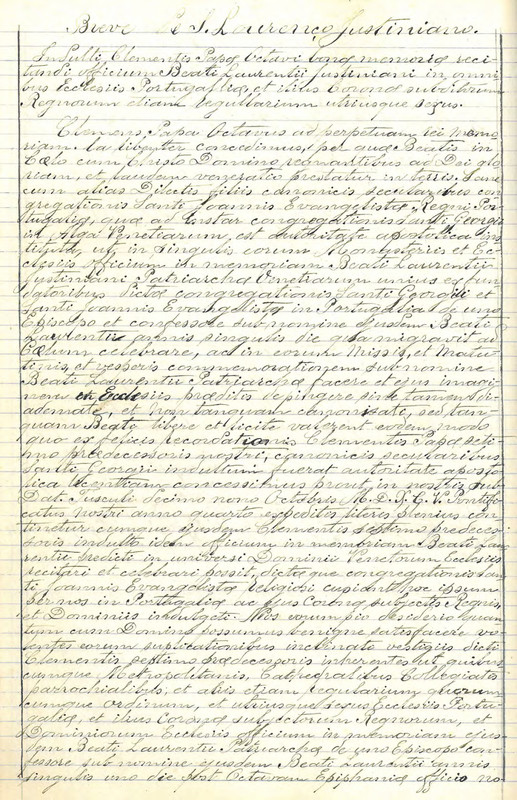 Breve de S. Lourenço Justiniano.
Indulti, Clementis Papæ Octavi bonæ memoriæ reci-
tandi officium Beati Laurentii Justiniani in omni
bus ecclesiis Portugalliæ, et illius Coronæ subditorum
Regnorum etiam regularium utriusque sexus.
Clemens, Papa Octavus ad perpetuam rei memo-
riam. La libenter concedimus, per quæ Beatis in
Cœlo cum Christo Domino regnantibus ad Dei glo
riam, et laudem veneratio præstatur in terris. Sane
cum alias Dilectis filiis canonicis secularibus con
gregationis Santi Joannis Evangelistæ, Regni Por-
tugaliæ, quæ ad instar congregationis Santi Georgii
in Alga Venetiarum, est autoritate apostolica ins
tituta, ut in singulis eorum Monasteriis et Ec-
clesiis officium in memoriam Beati Laurentii
Justiniani Patriarchæ Venetiarum unius ex fun
datoribus dictæ congregationis Santi Georgii et
Santi Joannis Evangelistæ in Portugalia de uno
Episcopo et confessore sub nomine ejusdem Beati
Laurentii annis singulis die qua migravit ad
Cœlum celebrare, ac in eorum Missis, et Matu-
tinis, et vesperis commemorationem sub nomine
Beati Laurentii Patriarchæ facere et ejus imagi
nem in Ecclesiis prædictis depingere sine tamen di-
ademate, et non tanquam canonisati, sed tan-
quam Beati libere et licite valerent eodem modo
quo ex felicis recordationis Clementis Papæ septi
mo prædecessoris nostri, canonicis secularibus
Santi Georgii indultum fuerat autoritate aposto
lica licentiam concessimus prout in nostris sub
Dat. Tusculi decimo nono Octobris M. D. Pontifi
catus nostri anno quarto expeditis literis plenius con
tinetur cumque ejusdem Clementis septimo prædeces
soris indulto idem officium in memoriam Beati Lau
rentii predicti in universi Dominii Venetorum Ecclesiis
recitari et celebrari possit, dictæque congregationis San
ti Joannis Evangelistæ religiosi cupiant hoc ipsum
per nos in Portugalia ac ejus Coronæ subjectis Regnis,
et Dominiis indulgeri. Nos eorum pio desiderio quan
tum cum Domino possumus benigne satisfacere vo-
lentes eorum suplicationibus inclinati vestigiis dicti
Clementis septimo prædecessoris inherentes ut quibus
cumque Metropolitanis, Catedralibus Collegiatis
parrochialibus, et aliis etiam regularium quorum
cumque ordinum, et utriusque sexus Ecclesiis Portu-
galiæ, et illius Coronæ subjectorum Regnorum, et
Dominiorum Ecclesiis officium in memoriam ejus-
dem Beati Laurentii Patriarchæ de uno Episcopo con-
fessore sub nomine ejusdem Beati Laurentii annis
singulis uno die post Octavam Epiphaniæ officio no